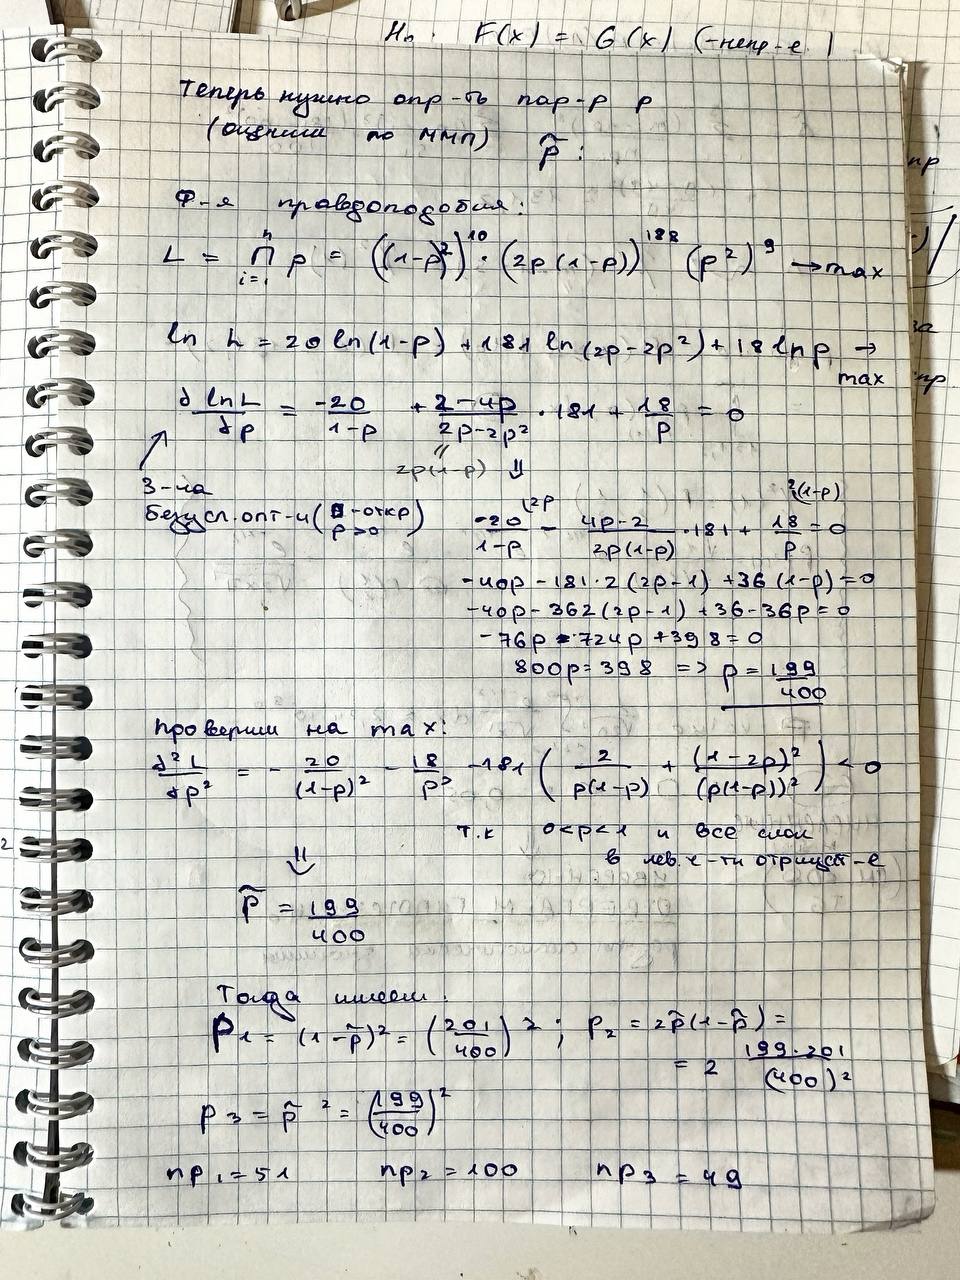 Но. F(x) = G(x) (-непр-е)
Теперь нужно опр-ть пар-р p
(оценили по ММП) p̃:
Ф-я правдоподобия:
L = ∏_{i=1}^{n} p = ((1-p)²)^{10} · (2p(1-p))^{188} (p²)^9 → max
ln L = 20 ln(1-p) + 181 ln(2p-2p²) + 18 ln p →
max
∂ ln L / ∂p = -20/(1-p) + (2-4p)/(2p-2p²) · 181 + 18/p = 0
2p(1-p) ⇓
З-ча
безусл. опт-и ( -откр)
p>0
-20/(1-p) (2p - (4p-2)/(2p(1-p)) · 181 + 18/p (2(1-p) = 0
-40p - 181·2(2p-1) + 36(1-p) = 0
-40p - 362(2p-1) + 36 - 36p = 0
-76p - 724p + 398 = 0
800p = 398 => p = 199/400
проверим на max:
∂²L/∂p² = - 20/(1-p)² - 18/p² - 181 ( 2/(p(1-p)) + (1-2p)²/(p(1-p))² ) < 0
т.к 0<p<1 и все слаг
в лев. ч-ти отрицат-е
⇓
p̃ = 199/400
Тогда имеем:
p₁ = (1-p̃)² = (201/400)²; p₂ = 2p̃(1-p̃) =
= 2 199·201/(400)²
p₃ = p̃² = (199/400)²
np₁ = 51 np₂ = 100 np₃ = 49